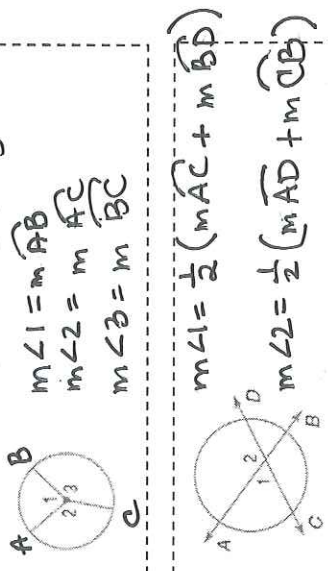 A B
1 2 3
C
m∠1 = m⌢AB
m∠2 = m⌢AC
m∠3 = m⌢BC
A D
1 2
C B
m∠1 = ½ (m⌢AC + m⌢BD)
m∠2 = ½ (m⌢AD + m⌢CB)